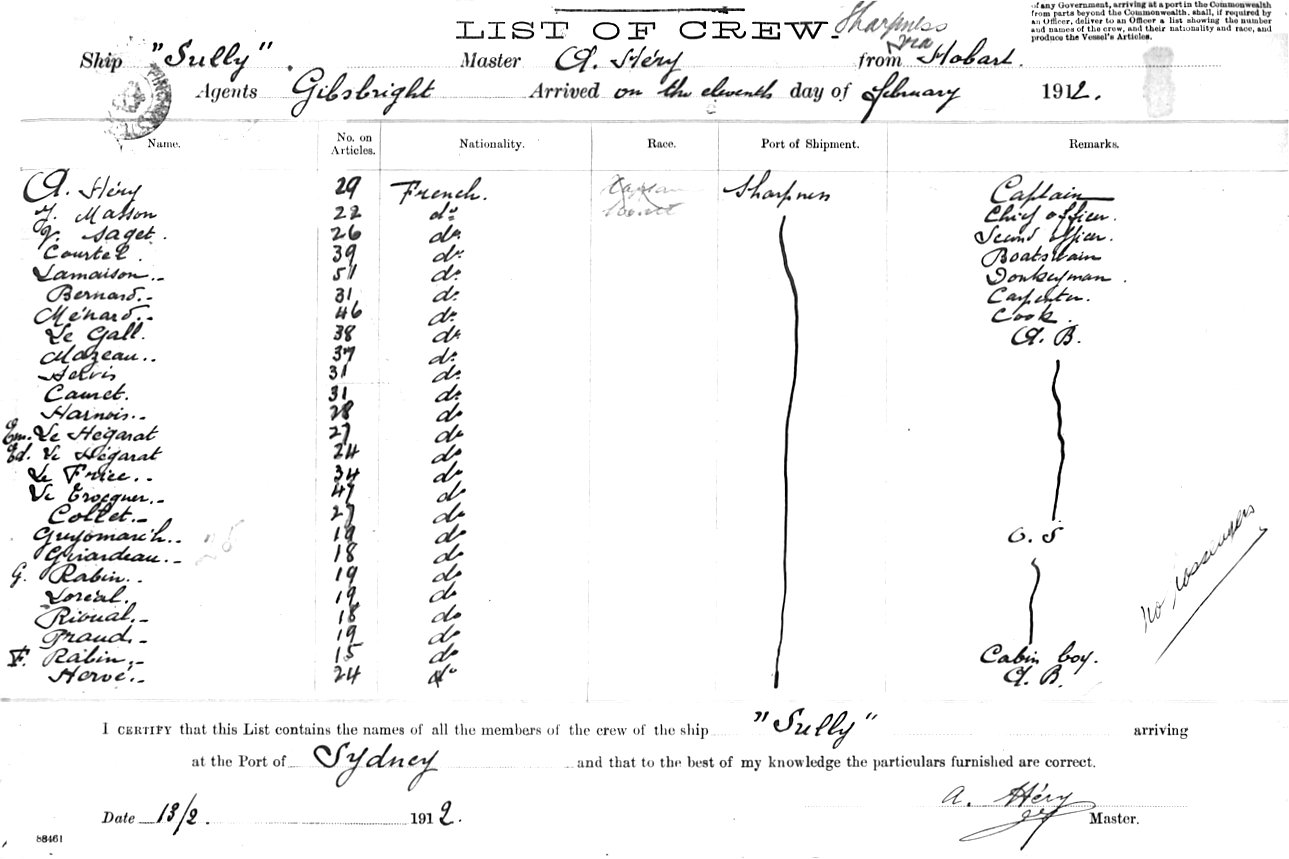 of any Government, arriving at a port in the Commonwealth
from parts beyond the Commonwealth, shall, if required by
an Officer, deliver to an Officer a list showing the number
and names of the crew, and their nationality and race, and
produce the Vessel's Articles.
LIST OF CREW.
Sharpness
via
Ship "Sully". Master A. Héry from Hobart.
Agents Gibsbright Arrived on the eleventh day of february 1912.
Name. No. on Articles. Nationality. Race. Port of Shipment. Remarks.
A. Héry 29 French. Sharpness Captain
Masson 22 do Chief officer.
V. Saget. 26 do Second officer.
Courtel. 39 do Boatswain
Lamaison 51 do Donkeyman.
Bernard 31 do Carpenter.
Ménard 46 do Cook.
Le Gall. 38 do A. B.
Mazeau 37 do
Hervis 31 do
Cauret. 31 do
Harnois 28 do
Em. Le Hégarat 27 do
Ed. Le Hégarat 24 do
Le 34 do
Le Trocquer 47 do
Collet 27 do
Guyomarc'h 19 do O. S
Girardeau 18 do
G. Rabin 19 do
Loréal. 19 do
Rioual 18 do
Praud 19 do
F. Rabin 15 do Cabin boy.
Hervé 24 do A. B.
No Passengers
I CERTIFY that this List contains the names of all the members of the crew of the ship "Sully" arriving
at the Port of Sydney and that to the best of my knowledge the particulars furnished are correct.
A. Héry
Date 13/2. 1912. Master.
88461